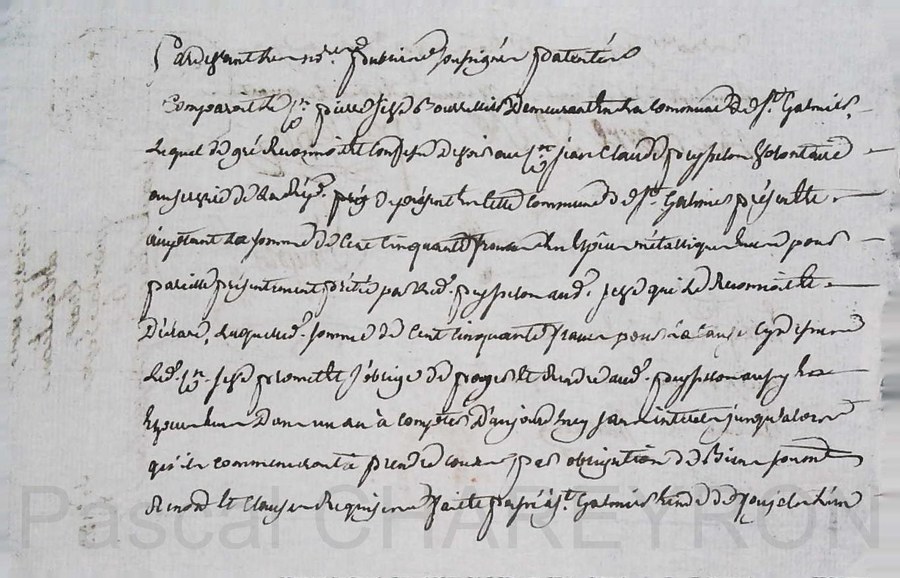 Pardevant les no.res publics soussignés patentés
Comparait le Sr pierre Jize Bourrellier Demeurant en la commune de St Galmier,
Lequel de gré Reconnoit et Confesse Devoir au Sr jean Claude peysselon Volontaire
au service de La Rép. de présent en cette commune de St Galmier présent et
acceptant La somme de Cent cinquante francs En Espèces métalliques pour
pareille présentement prêtée par led. peysselon aud. Jize qui Le Reconnoit et
Déclare, Laquelle d. somme de Cent cinquante francs pour La Cause cy dessus
Led. Sr Jize promet et s'oblige de payer et Rendre aud. peysselon
Dans un an à compter D'aujourd'huy sans intérêts jusqu'alors
qu'ils commenceront à prendre cours par obligation de Biens soumis
Renon. et Clauses Requises fait et passé à St Galmier
Pascal CHAREYRON